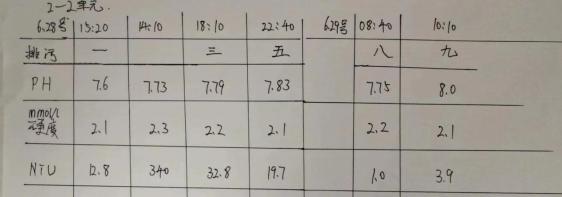 2-2单元.
6.28号 15:20 14:10 18:10 22:40 6.29号 08:40 10:10
排污 一 三 五 八 九
PH 7.6 7.73 7.79 7.83 7.75 8.0
mmol/L
硬度 2.1 2.3 2.2 2.1 2.2 2.1
NTU 12.8 340 32.8 19.7 1.0 3.9